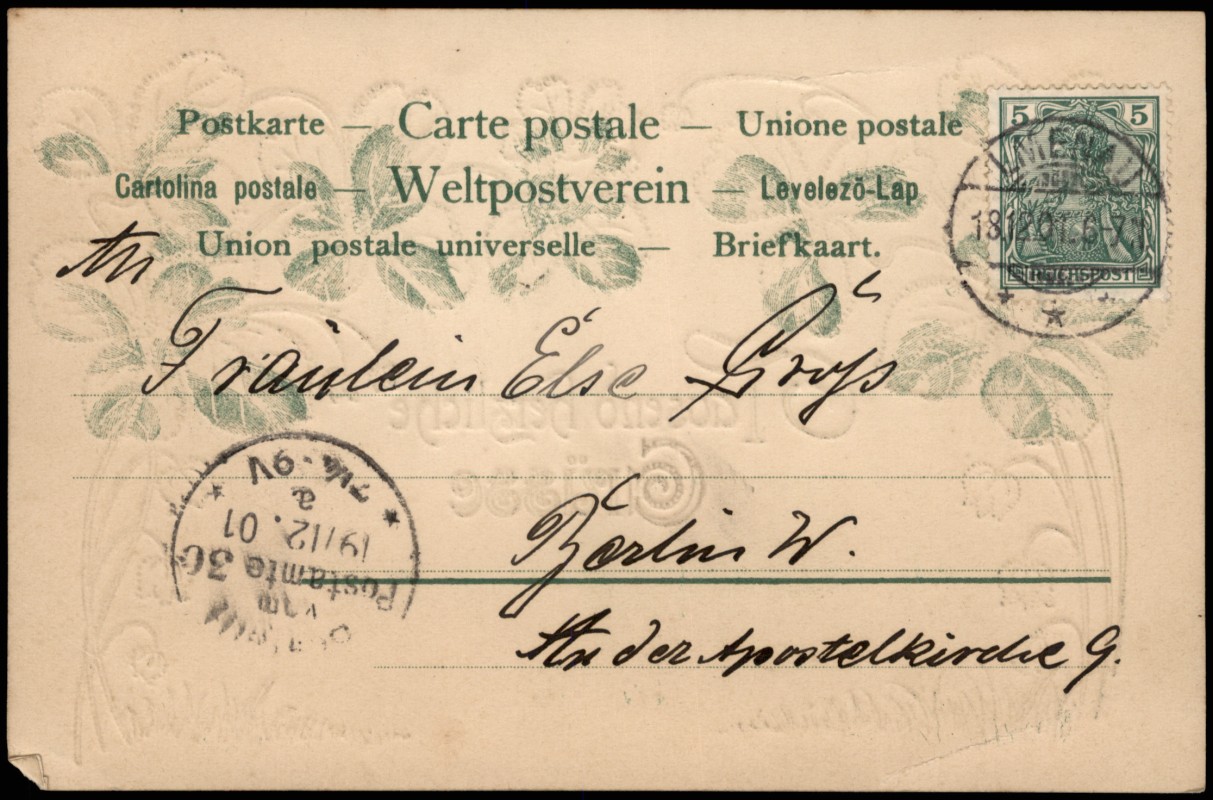 Postkarte — Carte postale — Unione postale
Cartolina postale — Weltpostverein — Levelező-Lap
Union postale universelle — Briefkaart.
5 5
REICHSPOST
18.12.01. 6-7N
An
Fräulein Else Groß
Tausend herzliche
Grüsse
Berlin W.
An der Apostelkirche 9.
Postamte 30
19/12. 01
9V